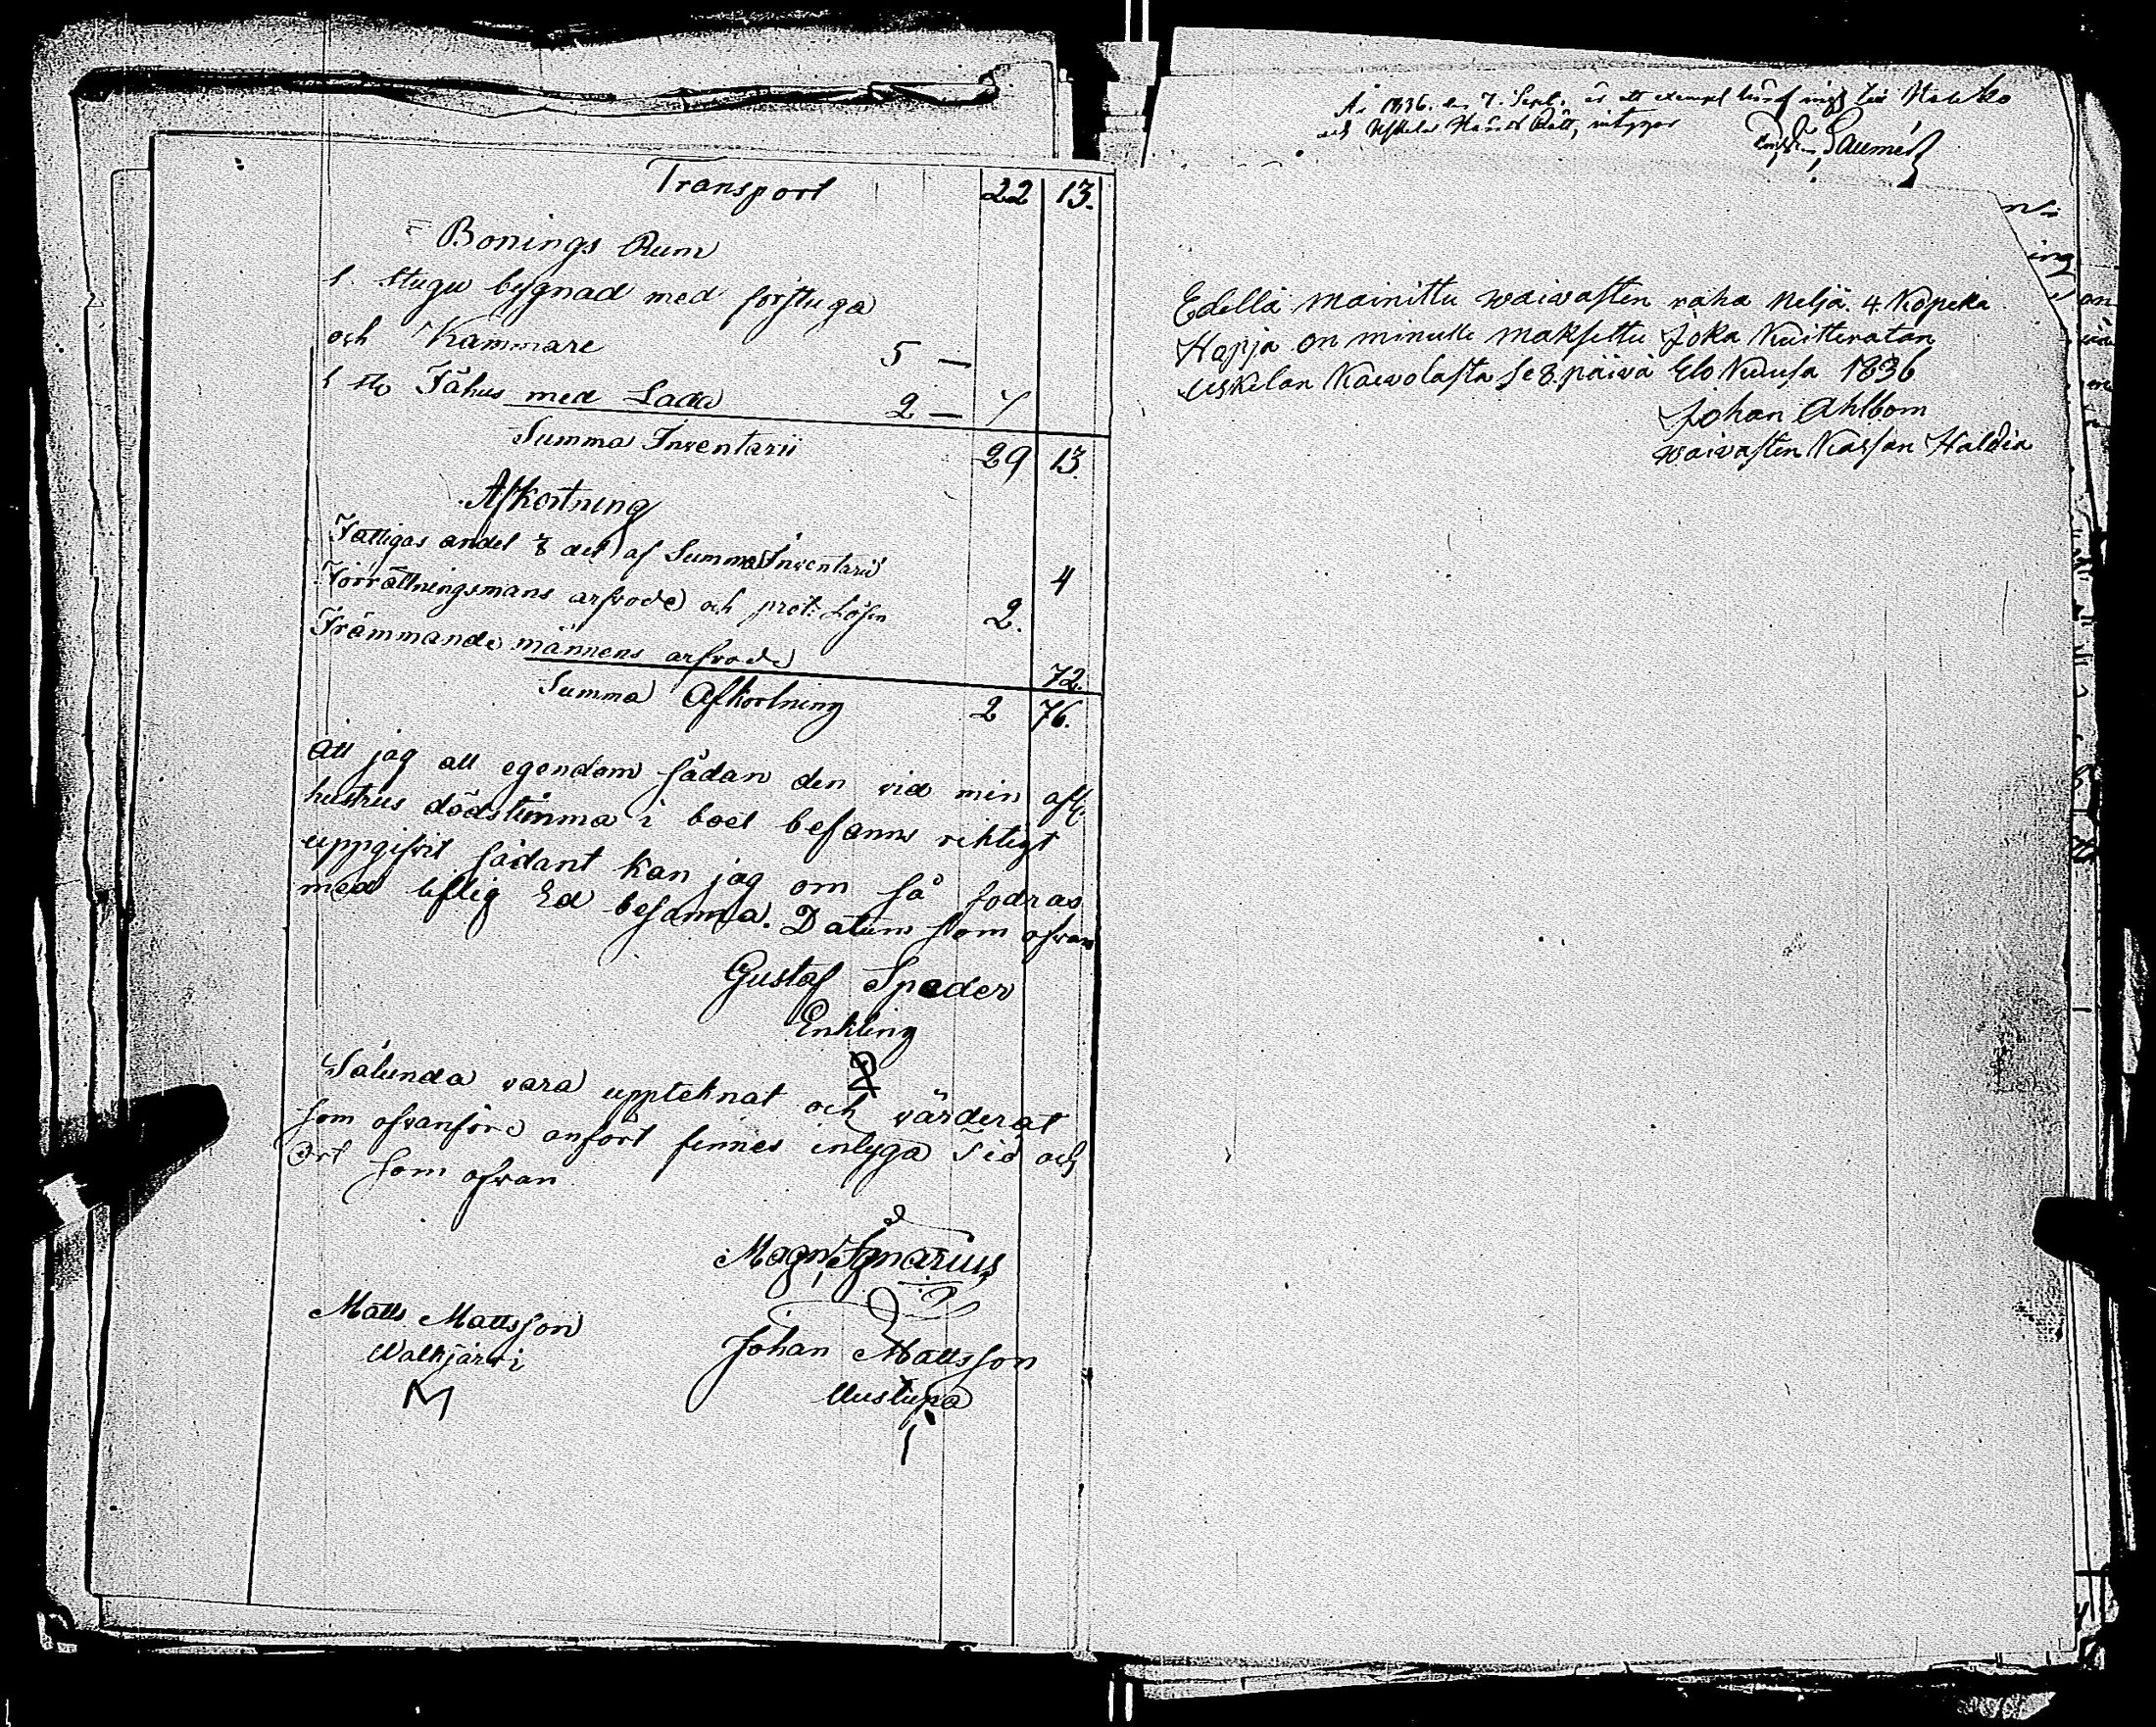 Transport 22 13.
Bonings Rum
1 stugu bygnad med forstuga
och Kammare 5 —
1 st Fähus med Lada 2 — 7
Summa Inventarii 29 13.
Afkortning
Fattigas andel 1/8 del af Summa Inventarii 4
Förrättningsmans arfvode och prot: Lösen 2.
Främmande männens arfvode 72.
Summa Afkortning 2 76.
Att jag all egendom sådan den vid min afl:
hustrus dödstimma i boet befanns riktigt
uppgifvit sådant kan jag om så fodras
med liflig Ed besanna. Datum som ofvan
Gustaf Spader
Enkling
Sålunda vara uppteknat och värderat
som ofvanföre anfört finnes intyga Tid och
Ort som ofvan
Magn Ignarius
Matts Mattsson
Walkjärvi
M
Johan Mattsson
Uustupa
År 1836. den 7. Sept. är ett exempl häraf till
och Uskela Härads Rätt, intygar
Edellä mainittu waivasten raha neljä 4 Kopeka
Hopja on minulle maksettu Joka Kuitteratan
Uskelan Kaivolasta se 8. päivä Elo Kuusa 1836
Johan Ahlbom
waivasten Kassan Haldia